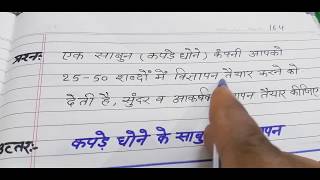 164
प्रश्न:- एक साबुन (कपड़े धोने) कंपनी आपको
25-50 शब्दों में विज्ञापन तैयार करने को
देती है, सुंदर व आकर्षक तैयार कीजिए
उत्तर:- कपड़े धोने के साबुन